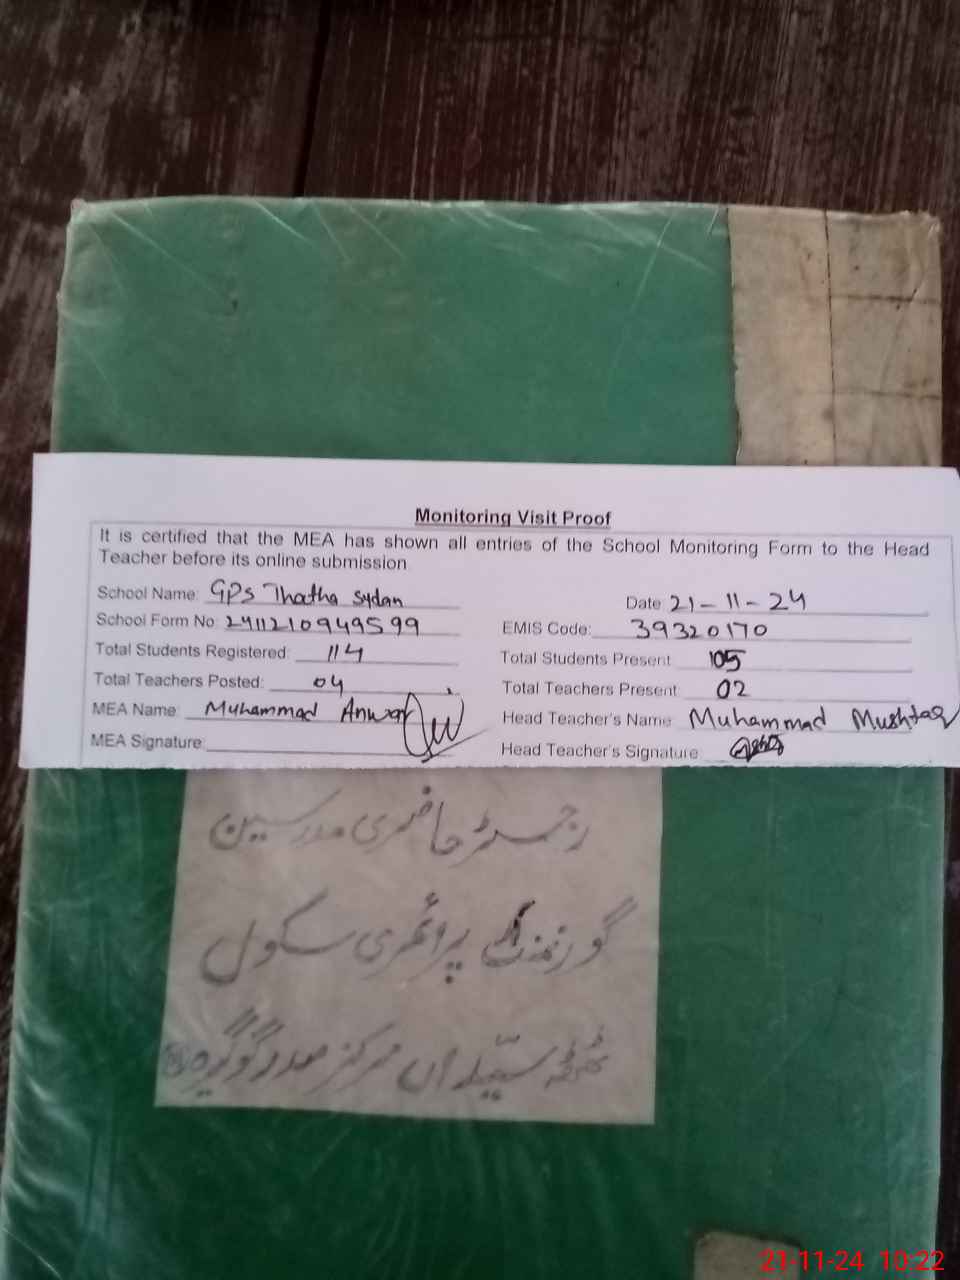 Monitoring Visit Proof
It is certified that the MEA has shown all entries of the School Monitoring Form to the Head
Teacher before its online submission
School Name: GPS Thatha Sydan
Date 21-11-24
School Form No: 2411210949599
EMIS Code: 39320170
Total Students Registered: 114
Total Students Present 105
Total Teachers Posted: 04
Total Teachers Present 02
MEA Name: Muhammad Anwar
Head Teacher's Name Muhammad Mushtaq
MEA Signature:
Head Teacher's Signature
رجسٹر حاضری مدرسین
گورنمنٹ پرائمری سکول
ٹھٹھہ سیداں مرکز صدر گوگیرہ
21-11-24 10:22